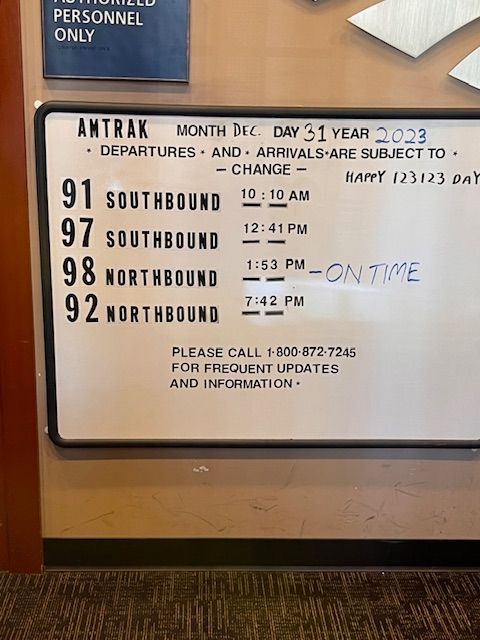 AUTHORIZED
PERSONNEL
ONLY
AMTRAK MONTH DEC. DAY 31 YEAR 2023
• DEPARTURES • AND • ARRIVALS • ARE SUBJECT TO •
— CHANGE —
HAPPY 123123 DAY
91 SOUTHBOUND 10:10 AM
97 SOUTHBOUND 12:41 PM
98 NORTHBOUND 1:53 PM - ON TIME
92 NORTHBOUND 7:42 PM
PLEASE CALL 1-800-872-7245
FOR FREQUENT UPDATES
AND INFORMATION •